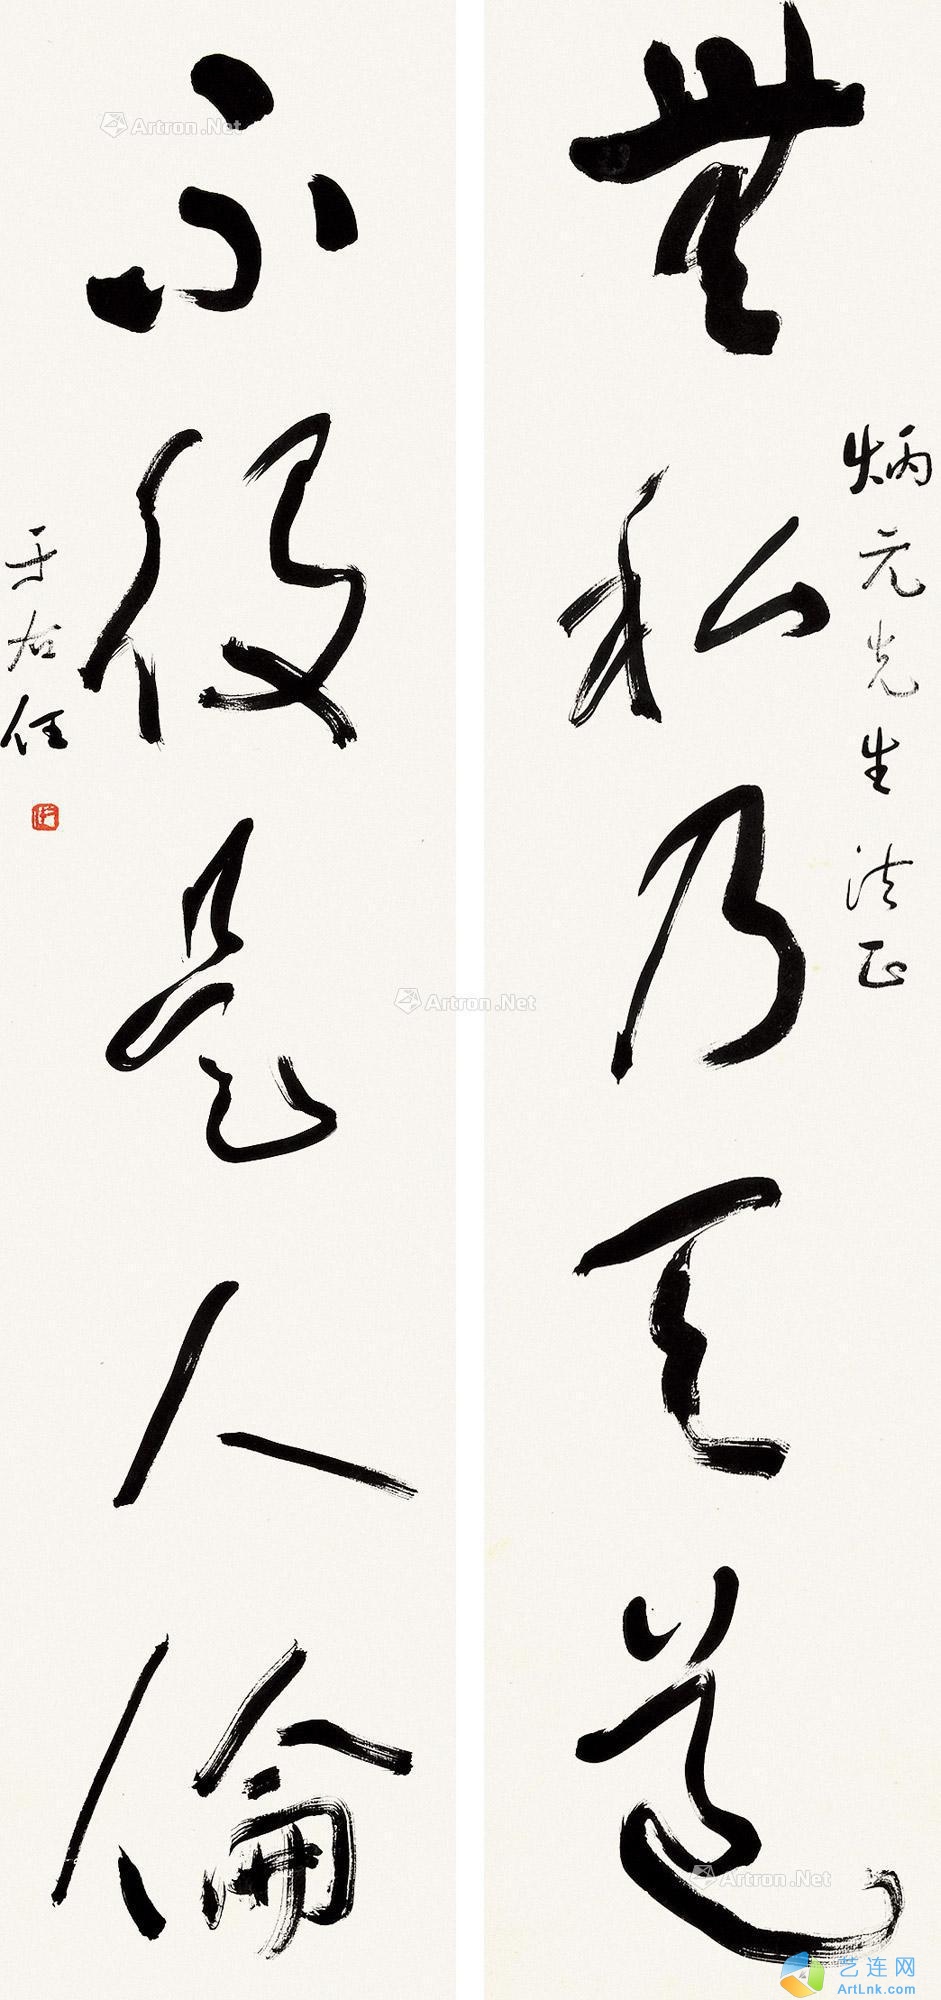 炳元先生法正
無私乃天道
不役是人倫
于右任
Artron.Net
Artron.Net
Artron.Net
艺连网
ArtLnk.com